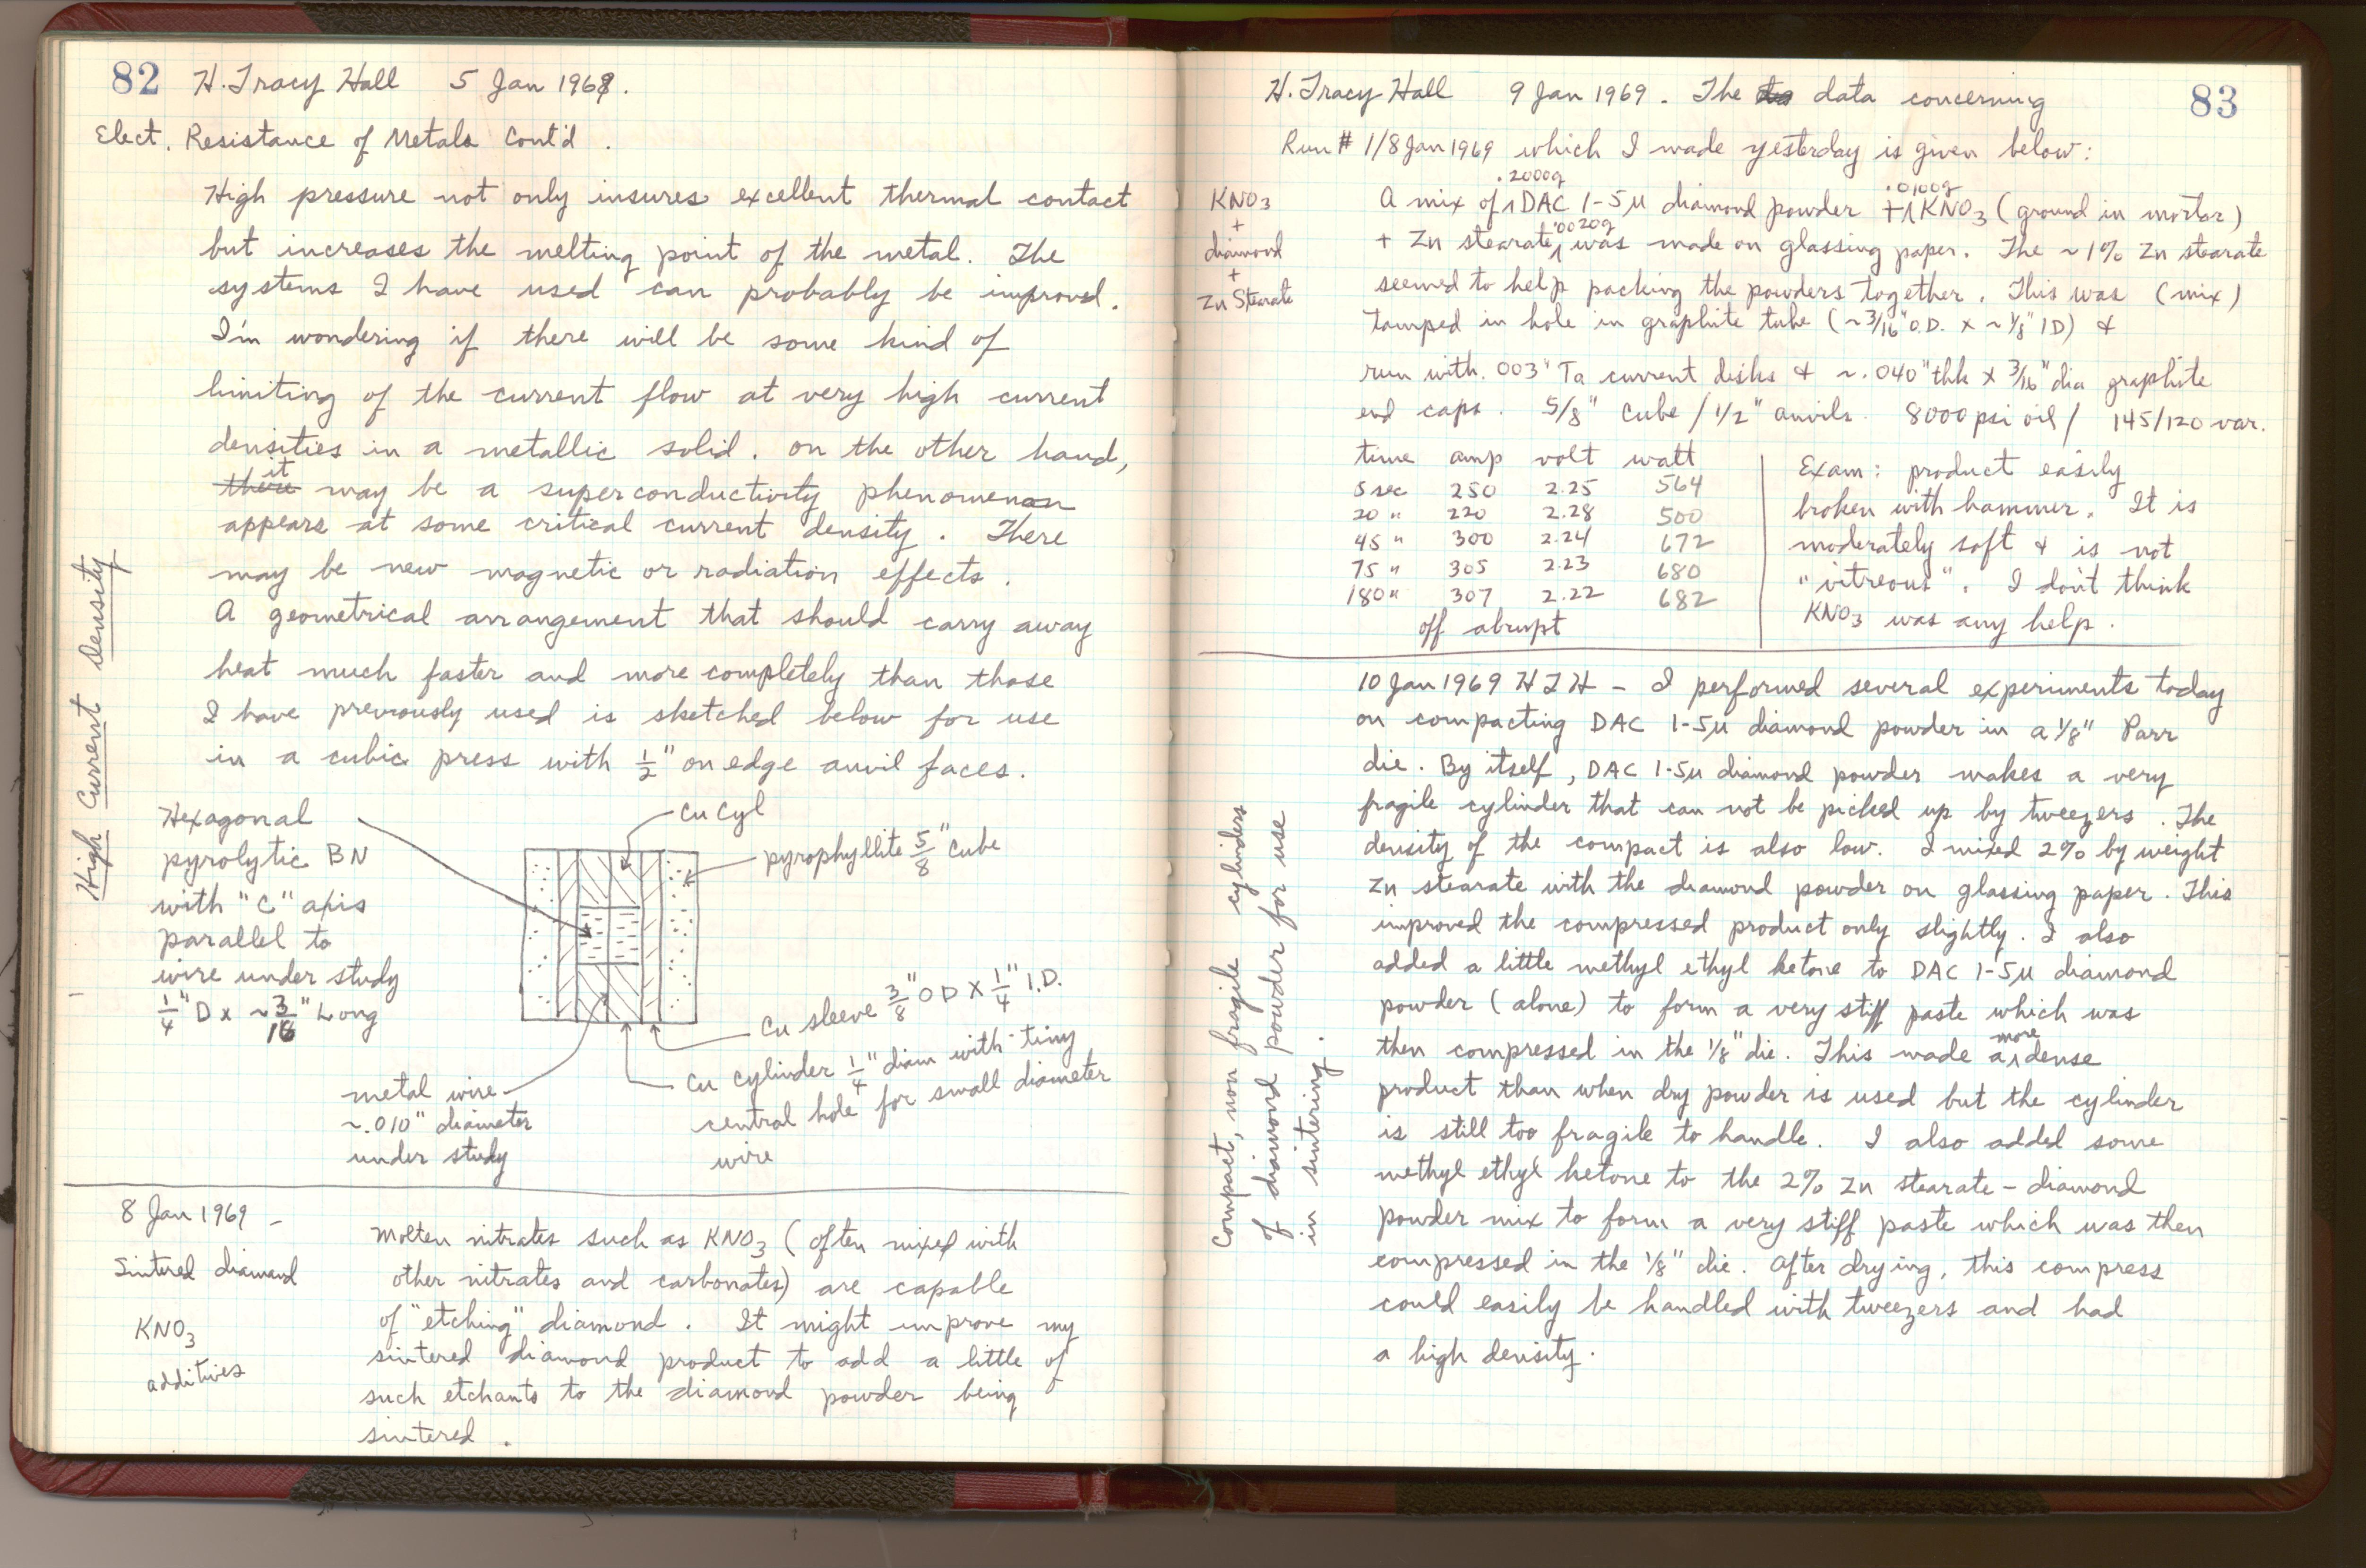 82 H. Tracy Hall 5 Jan 1969.
Elect. Resistance of Metals Cont'd.
High pressure not only insures excellent thermal contact
but increases the melting point of the metal. The
systems I have used can probably be improved.
I'm wondering if there will be some kind of
limiting of the current flow at very high current
densities in a metallic solid. On the other hand,
there it may be a superconductivity phenomenon
appears at some critical current density. There
may be new magnetic or radiation effects.
A geometrical arrangement that should carry away
heat much faster and more completely than those
I have previously used is sketched below for use
in a cubic press with 1/2" on edge anvil faces.
High Current Density
Hexagonal
pyrolytic BN
with "C" axis
parallel to
wire under study
1/4" D x ~3/16" Long
Cu Cyl
pyrophyllite 5/8" cube
Cu sleeve 3/8" OD X 1/4" I.D.
Cu cylinder 1/4" diam with tiny
central hole for small diameter
wire
metal wire
~.010" diameter
under study
8 Jan 1969 -
Sintered diamond
KNO3
additives
Molten nitrates such as KNO3 (often mixed with
other nitrates and carbonates) are capable
of "etching" diamond. It might improve my
sintered diamond product to add a little of
such etchants to the diamond powder being
sintered.
H. Tracy Hall 9 Jan 1969. The data concerning 83
Run # 1/8 Jan 1969 which I made yesterday is given below:
KNO3
+
diamond
+
Zn Stearate
A mix of .2000g DAC 1-5µ diamond powder + .0100g KNO3 (ground in mortar)
+ Zn stearate, .0020g was made on glassing paper. The ~1% Zn stearate
seemed to help packing the powders together. This was (mix)
tamped in hole in graphite tube (~3/16" O.D. x ~1/8" ID) &
run with .003" Ta current disks & ~.040" thk x 3/16" dia graphite
end caps. 5/8" cube / 1/2" anvils. 8000 psi oil / 145/120 var.
time amp volt watt
5 sec 250 2.25 564
20 " 220 2.28 500
45 " 300 2.24 672
75 " 305 2.23 680
180 " 307 2.22 682
off abrupt
Exam: product easily
broken with hammer. It is
moderately soft & is not
"vitreous". I don't think
KNO3 was any help.
10 Jan 1969 HTH - I performed several experiments today
on compacting DAC 1-5µ diamond powder in a 1/8" Parr
die. By itself, DAC 1-5µ diamond powder makes a very
fragile cylinder that can not be picked up by tweezers. The
density of the compact is also low. I mixed 2% by weight
Zn stearate with the diamond powder on glassing paper. This
improved the compressed product only slightly. I also
added a little methyl ethyl ketone to DAC 1-5µ diamond
powder (alone) to form a very stiff paste which was
then compressed in the 1/8" die. This made a more dense
product than when dry powder is used but the cylinder
is still too fragile to handle. I also added some
methyl ethyl ketone to the 2% Zn stearate - diamond
powder mix to form a very stiff paste which was then
compressed in the 1/8" die. After drying, this compress
could easily be handled with tweezers and had
a high density.
Compact, non fragile cylinders
of diamond powder for use
in sintering.